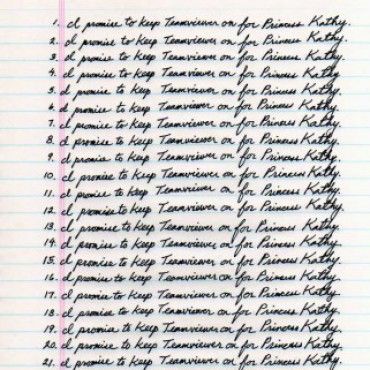 1. I promise to keep Teamviewer on for Princess Kathy.
2. I promise to keep Teamviewer on for Princess Kathy.
3. I promise to keep Teamviewer on for Princess Kathy.
4. I promise to keep Teamviewer on for Princess Kathy.
5. I promise to keep Teamviewer on for Princess Kathy.
6. I promise to keep Teamviewer on for Princess Kathy.
7. I promise to keep Teamviewer on for Princess Kathy.
8. I promise to keep Teamviewer on for Princess Kathy.
9. I promise to keep Teamviewer on for Princess Kathy.
10. I promise to keep Teamviewer on for Princess Kathy.
11. I promise to keep Teamviewer on for Princess Kathy.
12. I promise to keep Teamviewer on for Princess Kathy.
13. I promise to keep Teamviewer on for Princess Kathy.
14. I promise to keep Teamviewer on for Princess Kathy.
15. I promise to keep Teamviewer on for Princess Kathy.
16. I promise to keep Teamviewer on for Princess Kathy.
17. I promise to keep Teamviewer on for Princess Kathy.
18. I promise to keep Teamviewer on for Princess Kathy.
19. I promise to keep Teamviewer on for Princess Kathy.
20. I promise to keep Teamviewer on for Princess Kathy.
21. I promise to keep Teamviewer on for Princess Kathy.